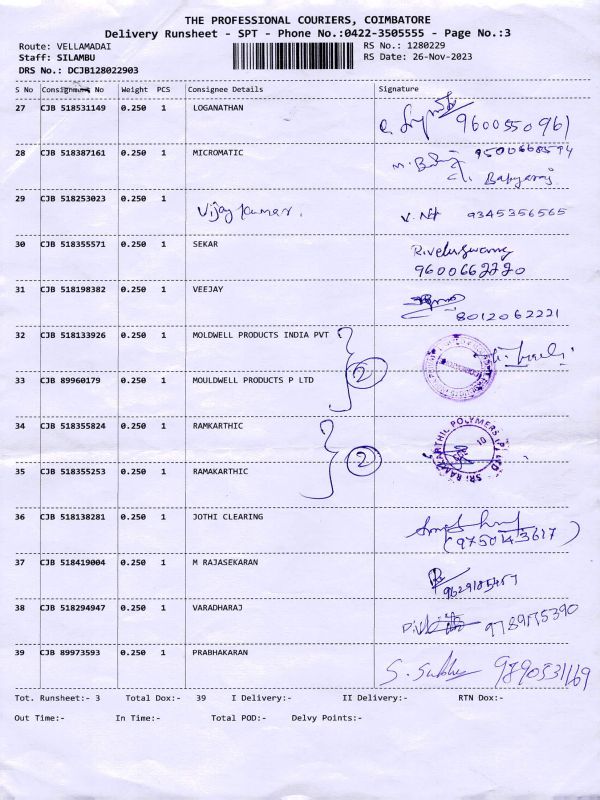 THE PROFESSIONAL COURIERS, COIMBATORE
Delivery Runsheet - SPT - Phone No.:0422-3505555 - Page No.:3
Route: VELLAMADAI RS No.: 1280229
Staff: SILAMBU RS Date: 26-Nov-2023
DRS No.: DCJB128022903
S No Consignment No Weight PCS Consignee Details Signature
27 CJB 518531149 0.250 1 LOGANATHAN 9600550961
28 CJB 518387161 0.250 1 MICROMATIC
29 CJB 518253023 0.250 1 Vijay Kumar. 9345356565
30 CJB 518355571 0.250 1 SEKAR
9600662220
31 CJB 518198382 0.250 1 VEEJAY 8012062221
32 CJB 518133926 0.250 1 MOLDWELL PRODUCTS INDIA PVT
2
33 CJB 89960179 0.250 1 MOULDWELL PRODUCTS P LTD
34 CJB 518355824 0.250 1 RAMKARTHIC
2
35 CJB 518355253 0.250 1 RAMAKARTHIC
36 CJB 518138281 0.250 1 JOTHI CLEARING
(9750143617)
37 CJB 518419004 0.250 1 M RAJASEKARAN
38 CJB 518294947 0.250 1 VARADHARAJ 9789175390
39 CJB 89973593 0.250 1 PRABHAKARAN 9890531169
Tot. Runsheet:- 3 Total Dox:- 39 I Delivery:- II Delivery:- RTN Dox:-
Out Time:- In Time:- Total POD:- Delvy Points:-